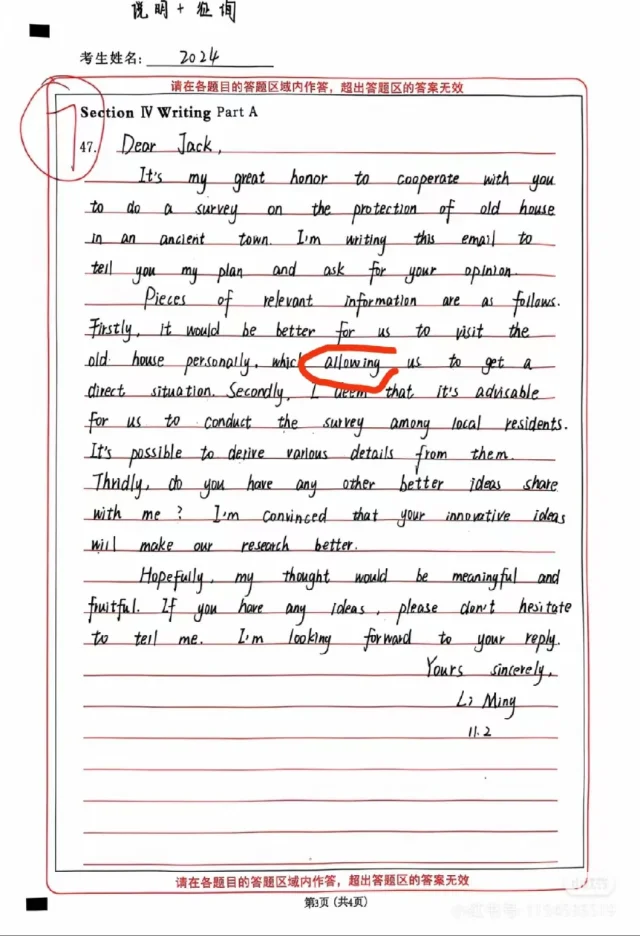 说明 + 征询
考生姓名: 2024
请在各题目的答题区域内作答，超出答题区的答案无效
7
Section Ⅳ Writing Part A
47. Dear Jack,
It's my great honor to cooperate with you
to do a survey on the protection of old house
in an ancient town. I'm writing this email to
tell you my plan and ask for your opinion.
Pieces of relevant information are as follows.
Firstly, it would be better for us to visit the
old house personally, which allowing us to get a
direct situation. Secondly, I deem that it's advisable
for us to conduct the survey among local residents.
It's possible to derive various details from them.
Thridly, do you have any other better ideas share
with me? I'm convinced that your innovative ideas
will make our research better.
Hopefully, my thought would be meaningful and
fruitful. If you have any ideas, please don't hesitate
to tell me. I'm looking forward to your reply.
Yours sincerely,
Li Ming
11.2
请在各题目的答题区域内作答，超出答题区的答案无效
第3页 (共4页)
小红书号: